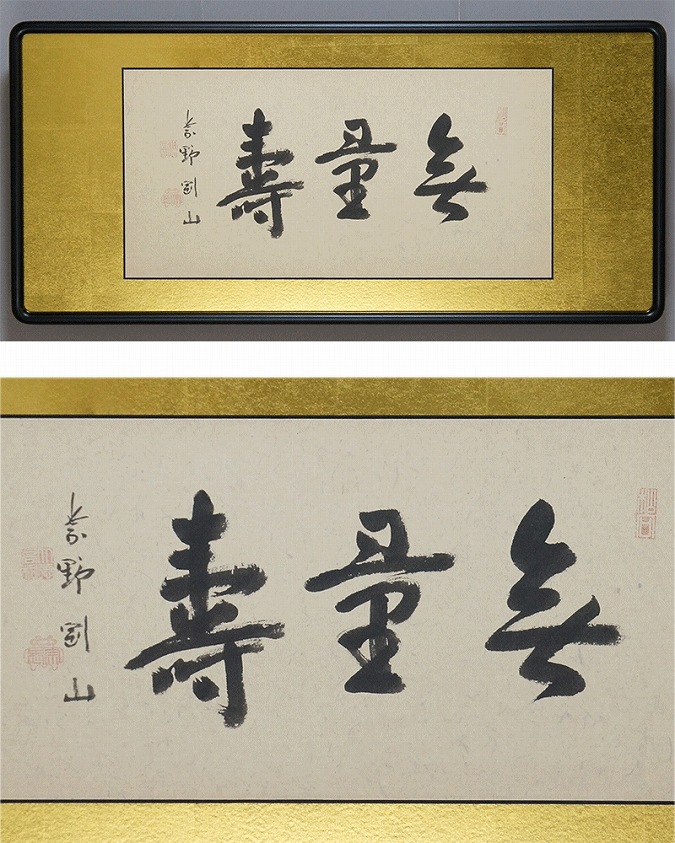 無量壽
紫野剛山
無量壽
紫野剛山